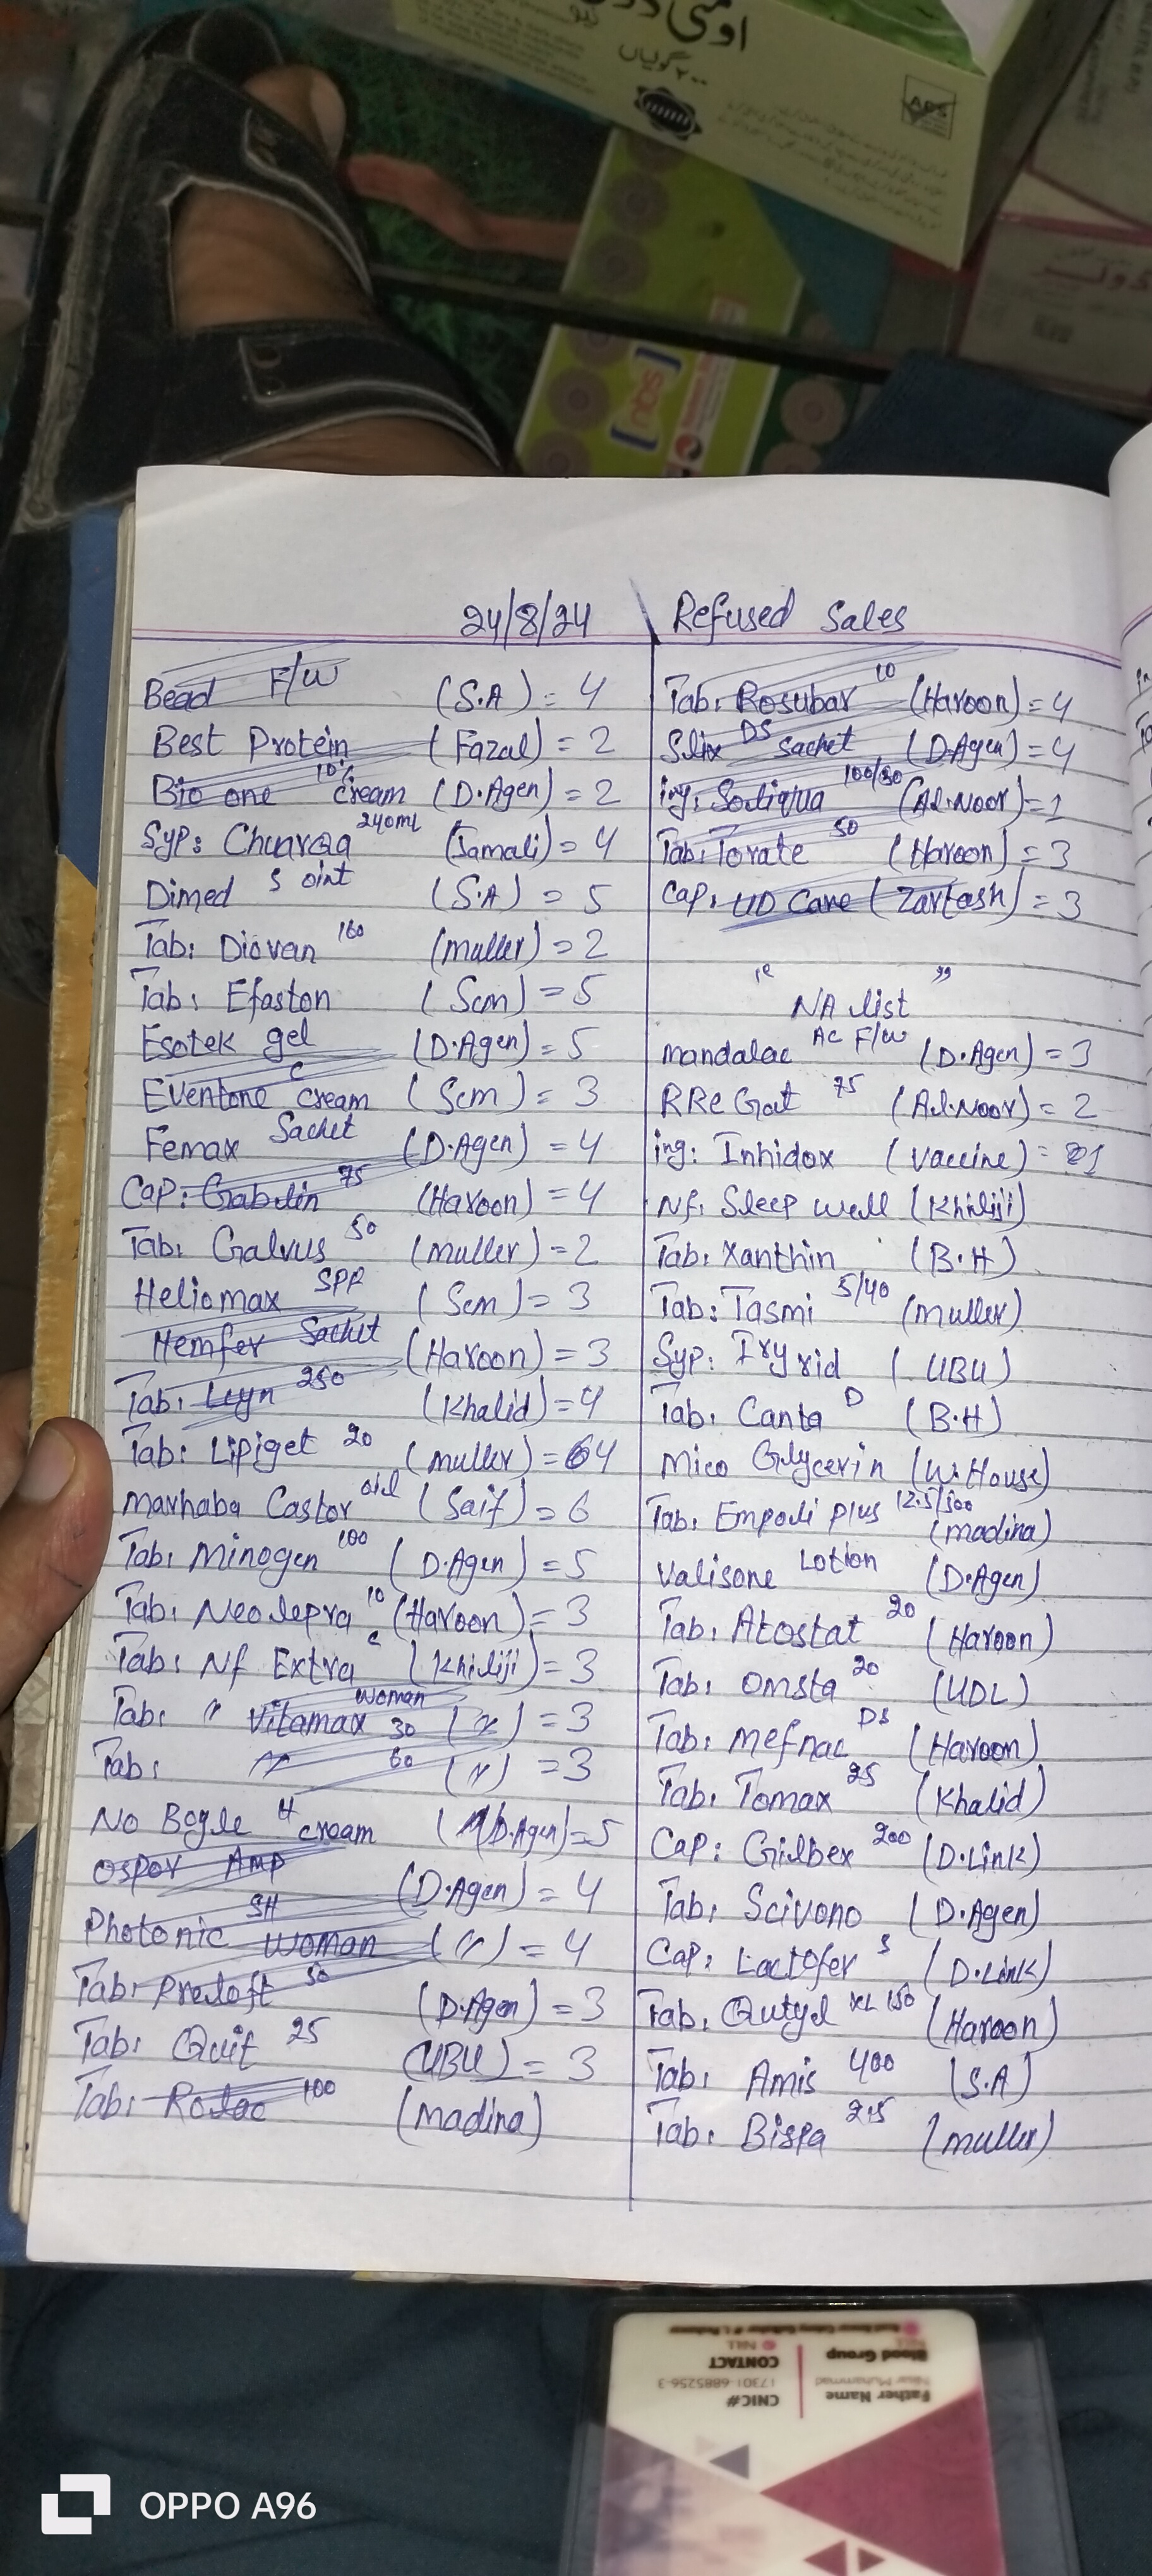 اومنی
۲۰۰ گولیاں
ADS
[SQU]
24/8/24
Refused Sales
Bead F/W (S.A) = 4
Best Protein (Fazal) = 2
Bio one 10% cream (D.Agen) = 2
Syp: 240ml (Jamali) = 4
Dimed S oint (S.A) = 5
Tab: Diovan 160 (muller) = 2
Tab: Efaston (Scm) = 5
Esotek gel (D.Agen) = 5
Eventone C cream (Scm) = 3
Femax Sachet (D.Agen) = 4
Cap: Gabulin 75 (Haroon) = 4
Tab: Galvus 50 (muller) = 2
Heliomax SPR (Scm) = 3
Hemfer Sachet (Haroon) = 3
Tab: Leyn 250 (Khalid) = 4
Tab: Lipiget 20 (muller) = 64
Marhaba Castor oil (Saif) = 6
Tab: Minogen 100 (D.Agen) = 5
Tab: Neolepra 10 (Haroon) = 3
Tab: Nf Extra C (Khiliji) = 3
Tab: " Vitamax Woman 30 (") = 3
Tab: " 60 (") = 3
No Bogle H cream (D.Agen) = 5
Ospor Amp (D.Agen) = 4
Photonic SH woman (") = 4
Tab: Preloft 50 (D.Agen) = 3
Tab: Quit 25 (UBU) = 3
Tab: Rolac 100 (Madina)
Tab: Rosubar 10 (Haroon) = 4
Slix DS Sachet (D.Agen) = 4
inj: Soliqua 100/50 (Al.Noor) = 1
Tab: Torate 50 (Haroon) = 3
Cap: UD Care (Zartash) = 3
" NA list "
mandalac AC F/W (D.Agen) = 3
RRe Gat 75 (Al.Noor) = 2
inj: Inhidox (Vaccine) = 1
Nf: Sleep well (Khiliji)
Tab: Xanthin (B.H)
Tab: Tasmi 5/40 (muller)
Syp: (UBU)
Tab: Canta D (B.H)
Mico Glycerin (W.House)
Tab: Empoli Plus 12.5/500 (Madina)
Valisone Lotion (D.Agen)
Tab: Atostat 20 (Haroon)
Tab: Omsta 20 (UDL)
Tab: Mefnac DS (Haroon)
Tab: Tomax 25 (Khalid)
Cap: Gilbex 200 (D.Link)
Tab: Scivono (D.Agen)
Cap: Lactofer S (D.Link)
Tab: Qutyl XL 150 (Haroon)
Tab: Amis 400 (S.A)
Tab: Bispa 2.5 (muller)
Father Name
CNIC#
17301-6885256-3
Blood Group
CONTACT
NILL
OPPO A96